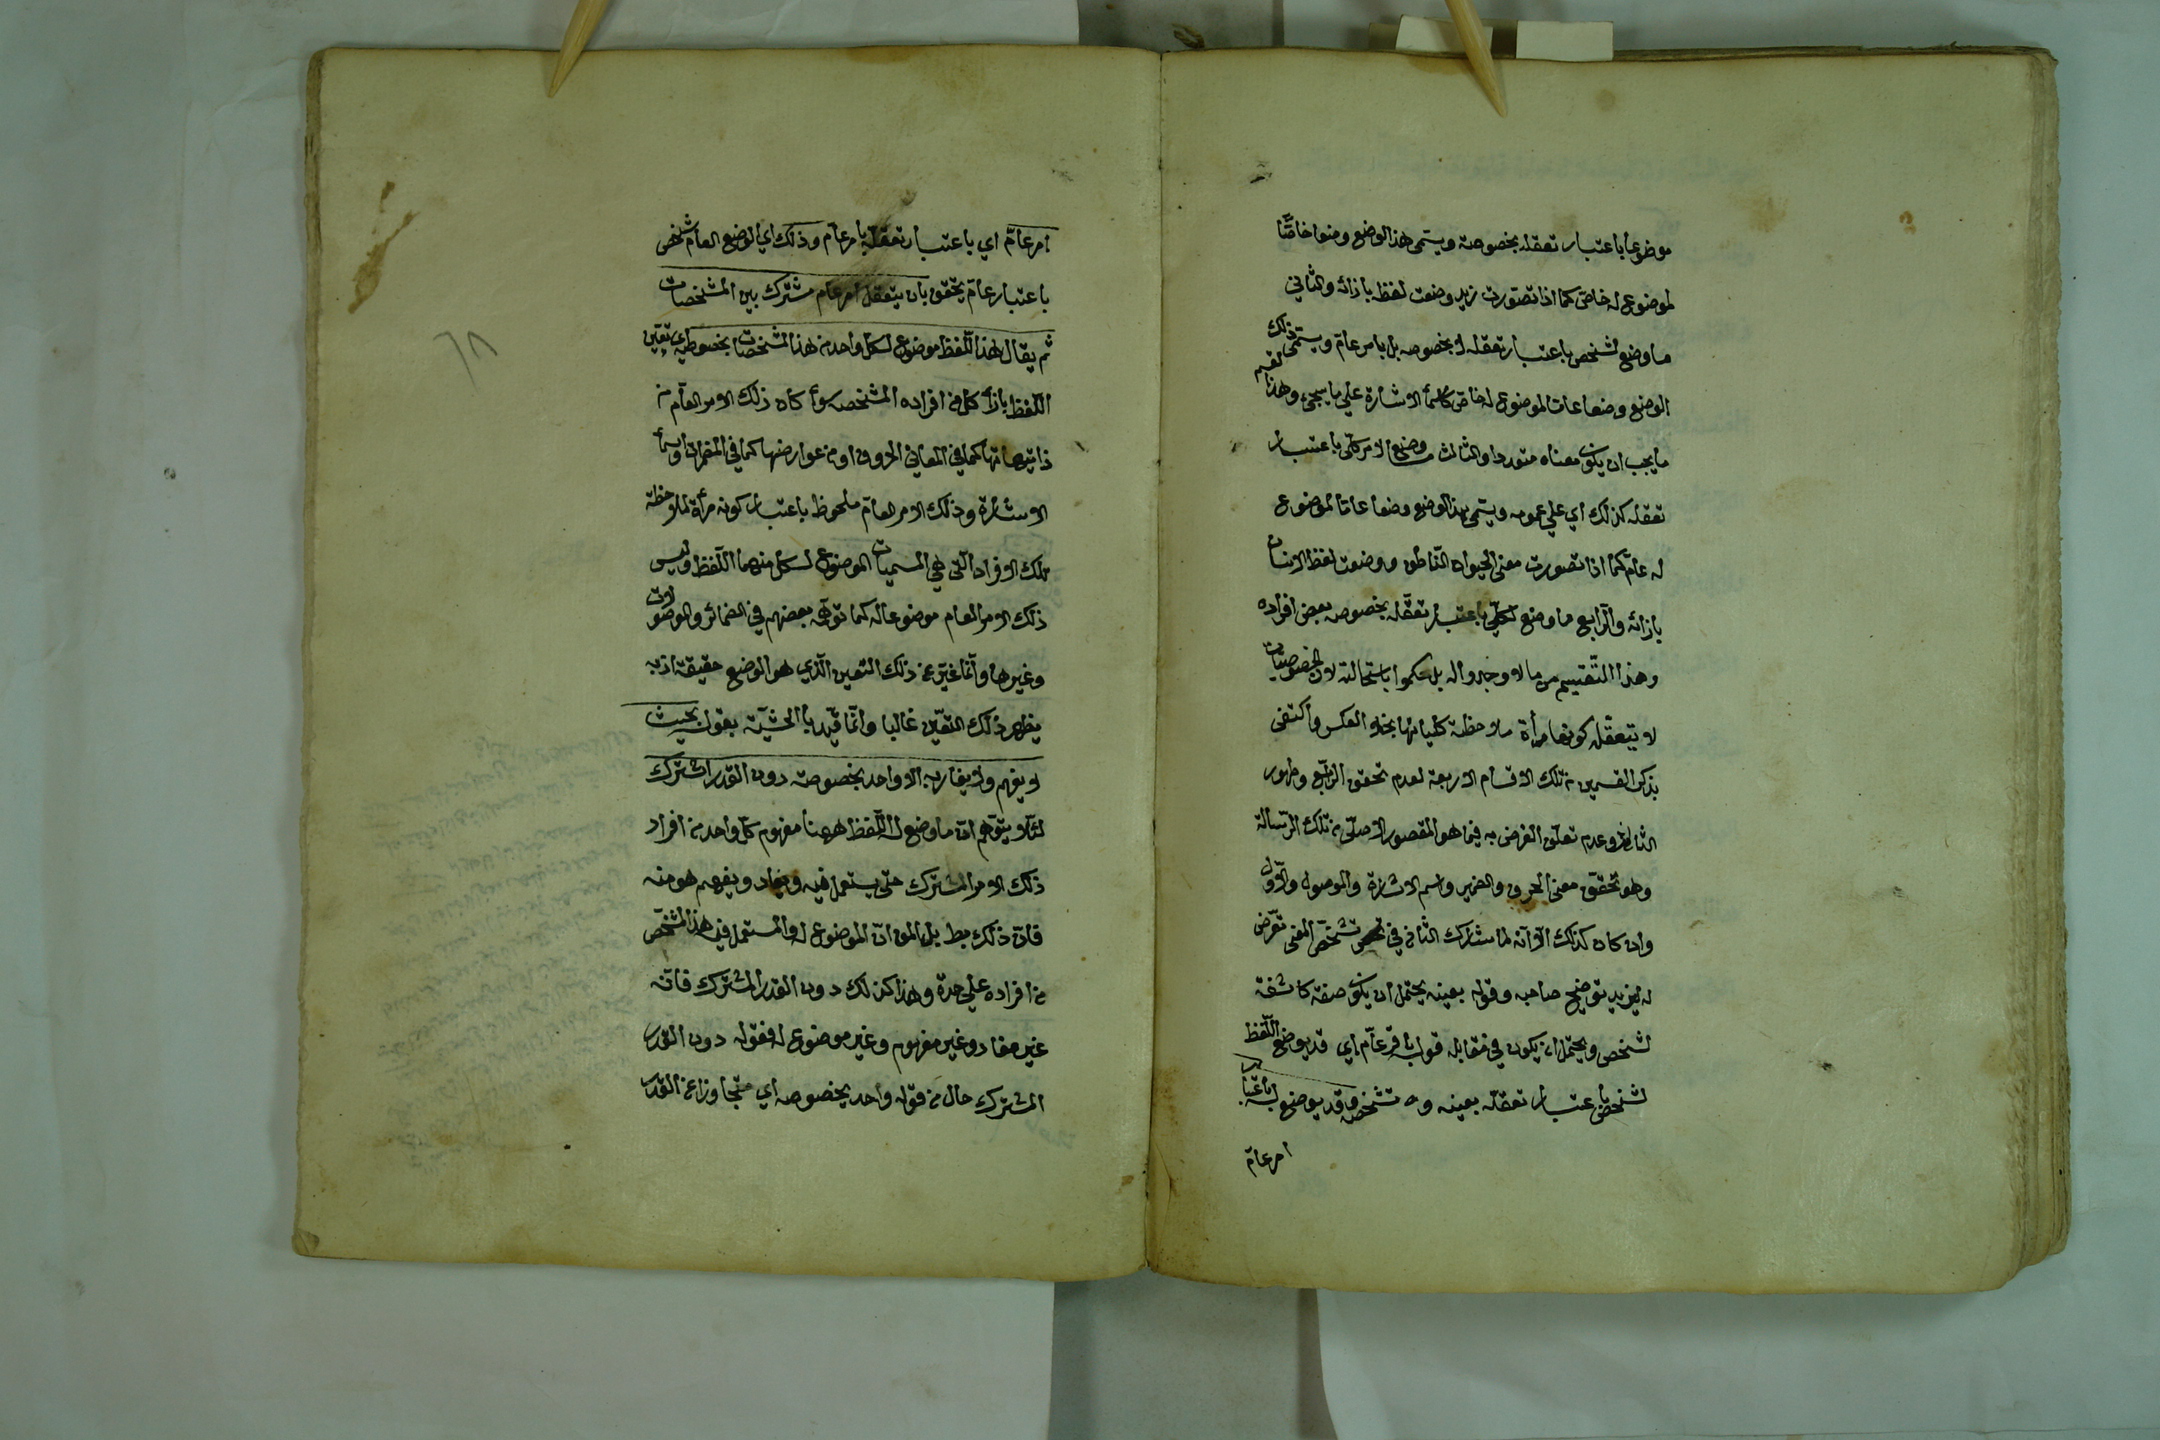 موضوعا باعتبار تعقله بخصوصه ويسمى هذا الوضع وضعا خاصًّا
لموضوع له خاص كما اذا تصورت زيد وضعت لفظه بازائه والثاني
ما وضع لشخص باعتبار تعقله لا بخصوصه بل بامر عامّ ويسمّى ذلك
الوضع وضعا عاما لموضوع له خاص كاسمأ الاشارة علي ما سيجيء وهذا
ما يجب ان يكون معناه متعددا والثالث ما وضع لامر كلّي باعتبار
تعقله كذلك اي علي عمومه ويسمّى هذا الوضع وضعا عامّا لموضوع
له عامّ كما اذا تصورت معنى الحيوان النّاطق ووضعت لفظ الانسان
بازائه والرّابع ما وضع لكلّي باعتبار تعقّله بخصوص بعض افراده
وهذا التّقسيم مما لا وجود له بل حكموا باستحالته لان الخصوصيّات
لا يتعقّل كونها مرأة ملاحظة كلياتها بخلاف العكس واكتفى
بذكر القسمين من تلك الاقسام الاربعة لعدم تحقق الرّابع وظهور
الثالث وعدم تعلّق الغرض به فيما هو المقصود الاصلّي من تلك الرّسالة
وهو تحقّق معنى الحرف والضمير واسم الاشارة والموصول والاوّل
وان كان كذلك الّا انّه لما شارك الثاني في تشخّص المعنى تعرّض
له لمزيد توضيح صاحبه وقوله بعينه يحتمل ان يكون صفة كاشفة
لشخص ويحتمل ان يكون في مقابله قوله بامر عامّ اي قد يوضع اللّفظ
لشخص باعتبار تعقّله بعينه وتشخّصه وقد يوضع له باعتبار
امر عامّ
امر عامّ اي باعتبار تعقّله بامر عامّ وذلك اي الوضع العام لشخص
باعتبار عامّ يتحقق بان يتعقل امر عام مشترك بين المشخصات
ثم يقال هذا اللّفظ موضوع لكلّ واحد من هذه المشخصات بخصوصه اي تعيّن
اللّفظ بازأ كل من افراده المشخصه سوأ كان ذلك الامر العامّ من
ذاتياتها كما في المعاني الحروف او من عوارضها كما في المضمرات واسمأ
الاشارة وذلك الامر العامّ ملحوظ باعتبار كونه مرأة لملاحظة
تلك الافراد التّي هي المسميات الموضوع لكل منهما اللّفظ وليس
ذلك الامر العام موضوعا له كما توهّمه بعضهم في الضمائر والموصولات
وغيرها وانّما عبّر عن ذلك التعين الّذي هو الوضع حقيقة اذ به
يظهر ذلك التعيّن غالبا وانّما قيّد بالحيثيّة بقوله بحيث
لا يفهم ولا يفاد به الا واحد بخصوصه دون القدر المشترك
لئلّا يتوهّم انّ ما وضع له اللّفظ ههنا مفهوم كلّ واحد من افراد
ذلك الامر المشترك حتى يستعمل فيه ويفاد ويفهم هو منه
فانّ ذلك بط بل المق انّ الموضوع له والمستعمل فيه هذا المشخّص
من افراده علي حدة وهذا كذلك دون القدر المشترك فانّه
غير مفاد وغير مفهوم وغير موضوع له فقوله دون القدر
المشترك حال من قوله واحد بخصوصه اي متجاوزا عن القدر
٦٨